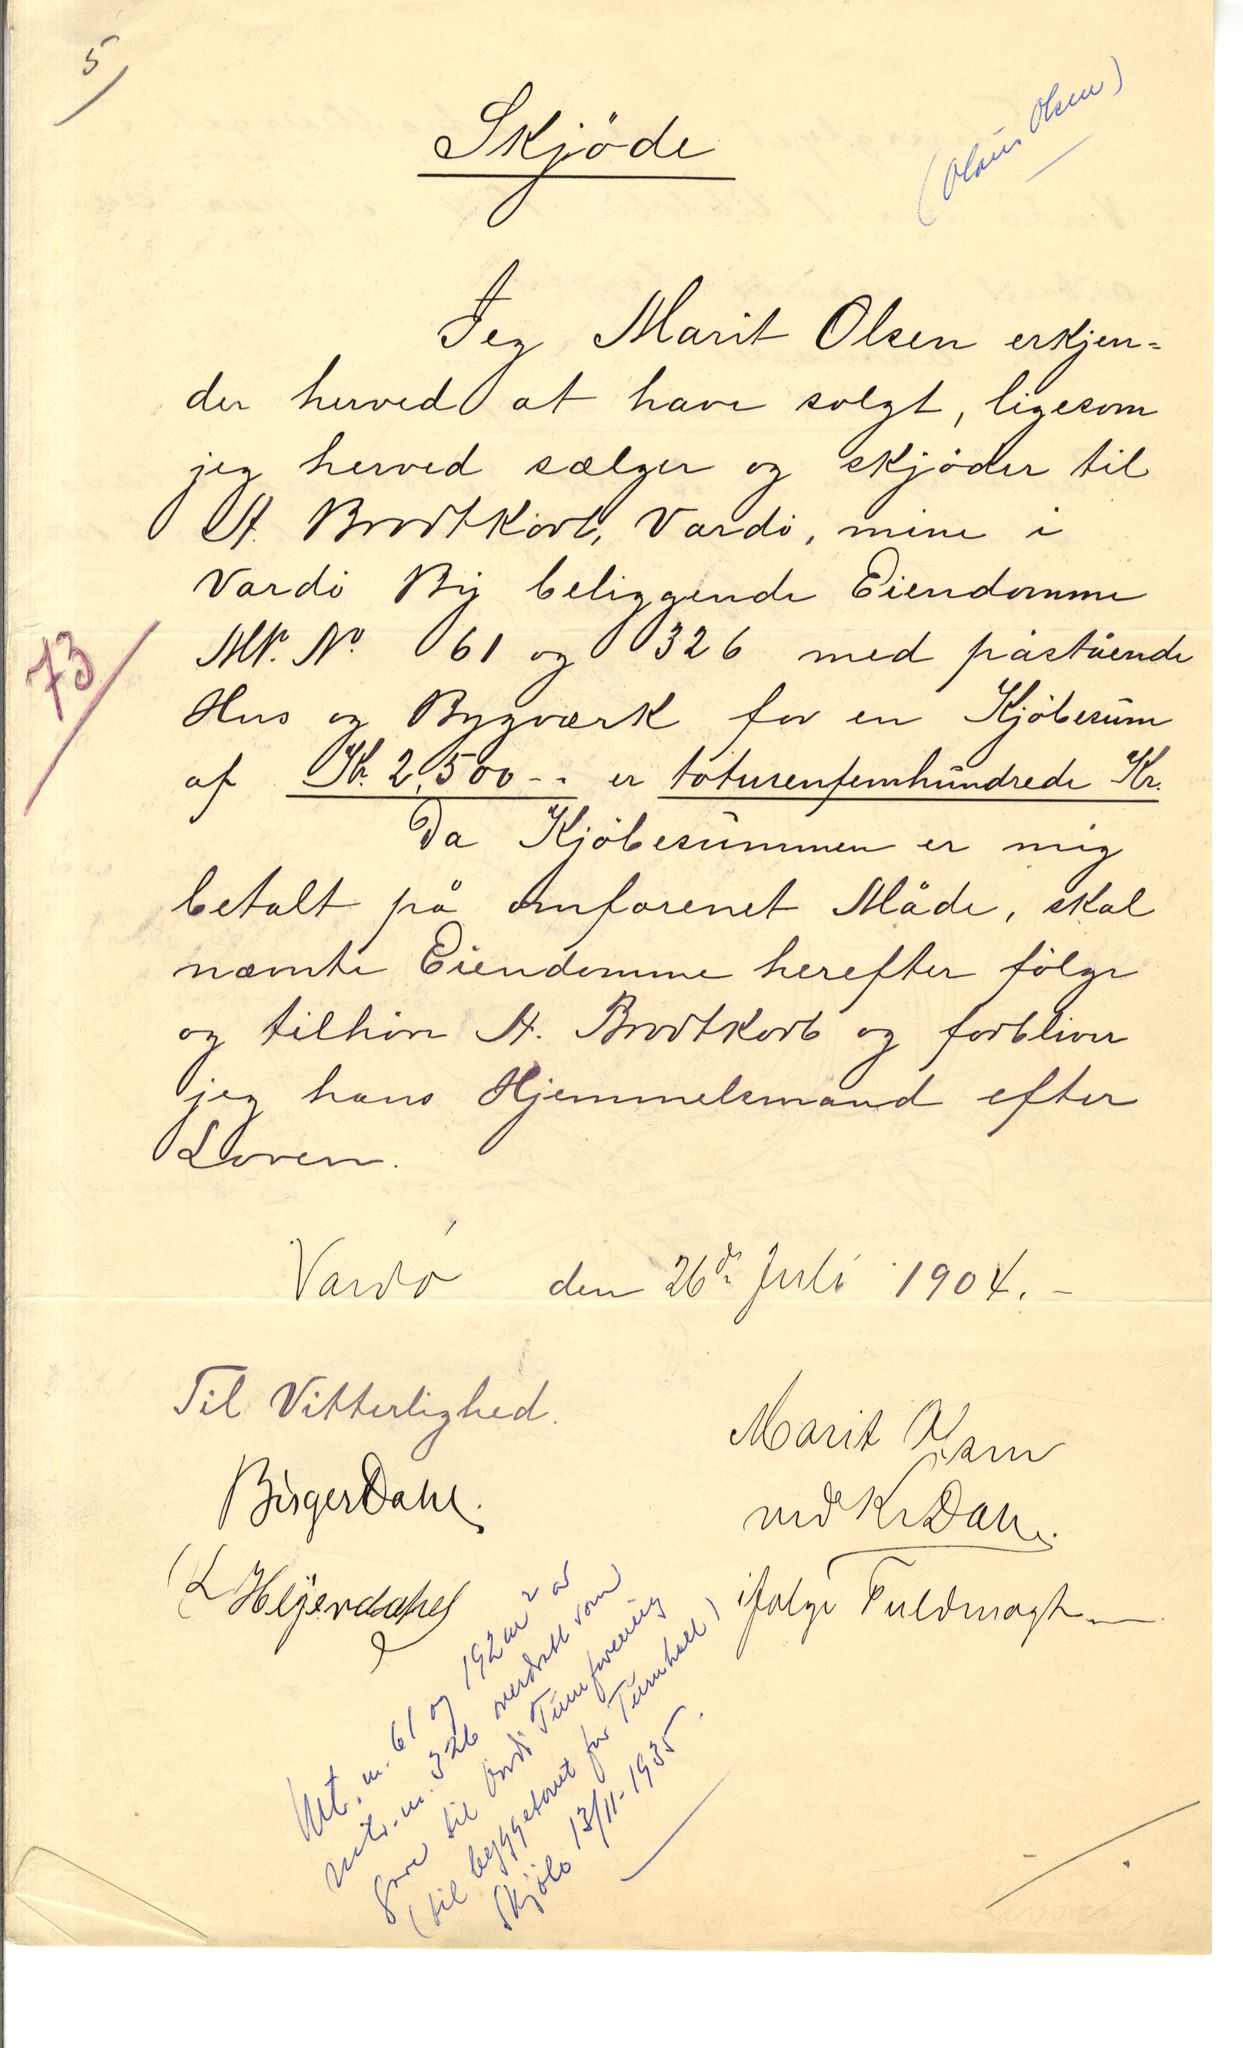 5
(Olaus Olsen)
Skjöde
Jeg Marit Olsen erkjen=
der herved at have solgt, ligesom
jeg herved sælger og skjöder til
A. Brodtkorb, Vardö, mine i
Vardö By beliggende Eiendomme
Mtr. No. 61 og 326 med påstående
Hus og Bygværk for en Kjöbesum
af Kr. 2,500 -- er totusenfemhundrede Kr.
Da Kjöbesummen er mig
betalt på omforenet Måde, skal
nævnte Eiendomme herefter fölge
og tilhöre A. Brodtkorb og forbliver
jeg hans Hjemmelsmand efter
Loven.
73
Vardø den 26de Juli 1904. -
Til Vitterlighed.
Birger Dahl.
L Heyerdahl
Marit Olsen
ved Kr Dahl.
ifølge Fuldmagt
Mtr. nr. 61 og 192 m² av
mtr. nr. 326 overdratt som
gave til Vardö Turnforening
(til byggetomt for Turnhall)
Skjöte 13/11-1935.